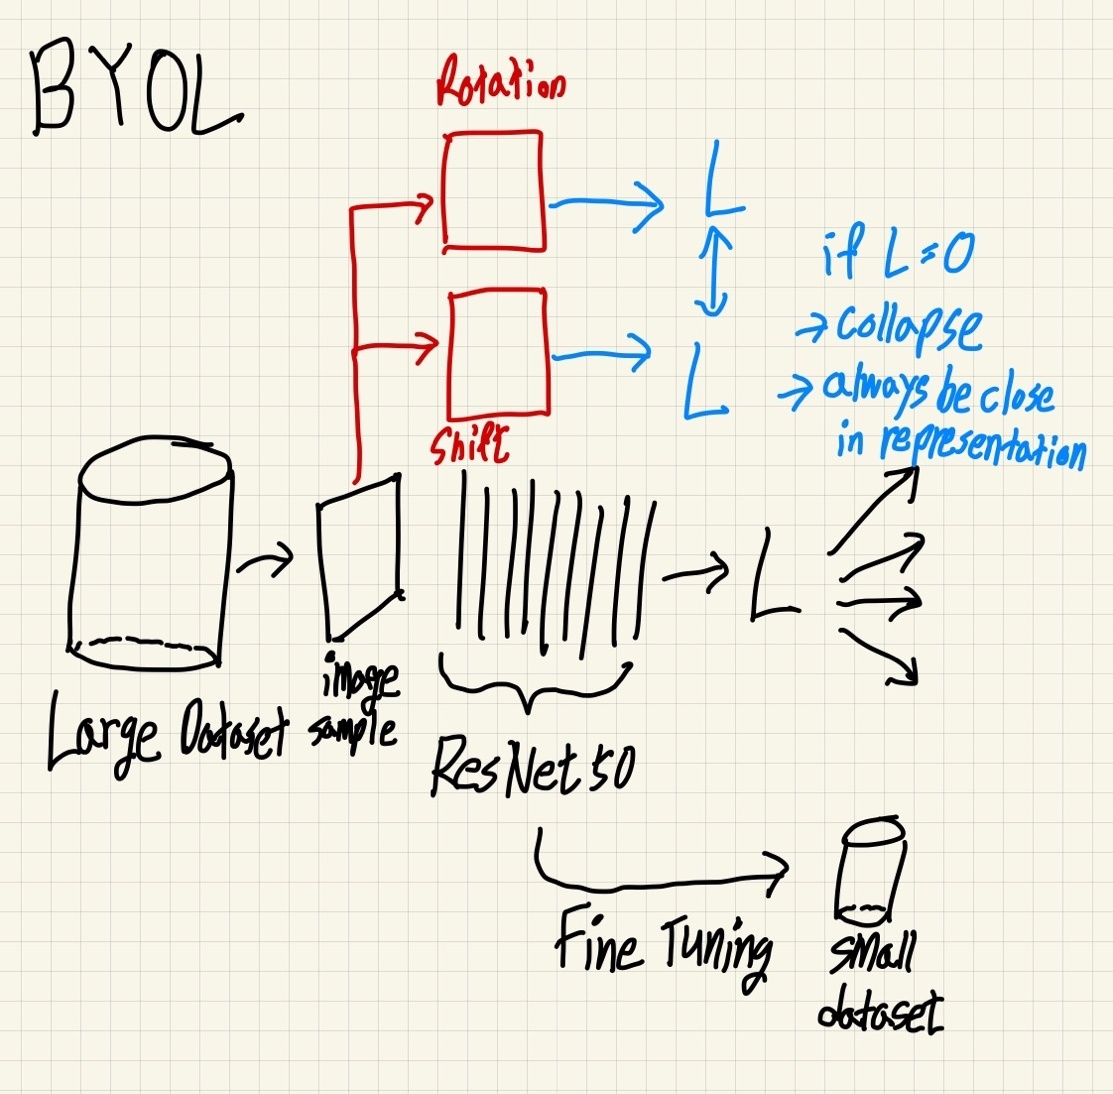 BYOL
Rotation
L
if L=0
→ collapse
Shift
L
→ always be close
in representation
L
Large Dataset
image
sample
ResNet50
Fine Tuning
small
dataset